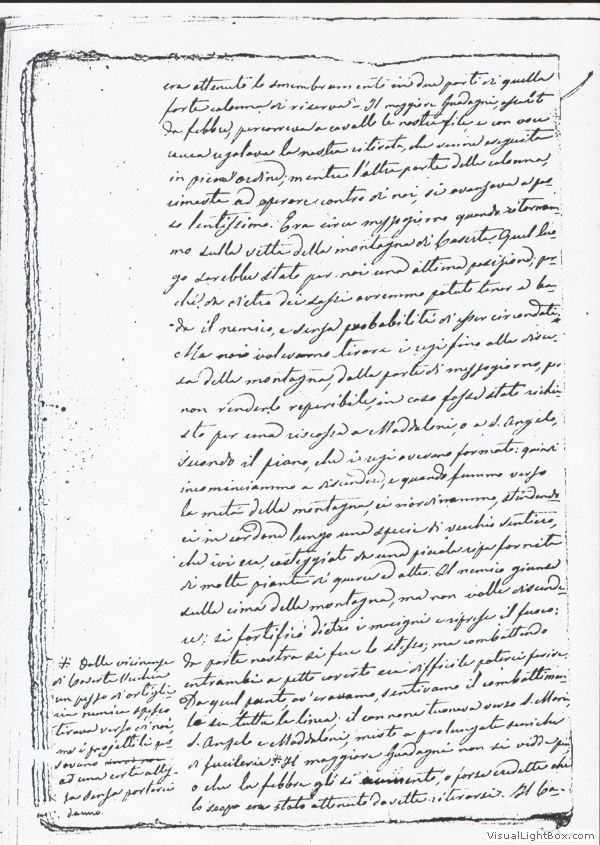 era ottenuto lo smembramento in due parti di quella
forte colonna di riserva. Il maggiore Guadagni, assalito
da febbre, percorreva a cavallo le nostre file, e con voce
regolava la nostra ritirata, che venne eseguita
in pieno ordine; mentre l'altra parte della colonna,
rimasta ad operare contro di noi, si avanzava a pas-
so lentissimo. Era circa mezzogiorno quando ritornam-
mo sulla vetta della montagna di Caserta. Quel luo-
go sarebbe stato per noi una ottima posizione, po
ché, da dietro dei sassi avremmo potuto tener a ba-
da il nemico, e senza probabilità di esser circondati.
Ma noi volevamo tirare i regi fino alla disce-
sa della montagna, dalla parte di mezzogiorno, pe
non renderlo reperibile, in caso fosse stato richie
sto per una riscossa a Maddaloni, o a S. Angelo,
secondo il piano, che i regi avevano formato: quindi
incominciammo a discendere, e quando fummo verso
la metà della montagna, ci riordinammo, stendendo-
ci in cordone lungo una specie di vecchio sentiero,
che ivi era, costeggiato da una piccola ripa fornita
di molte piante di querce ed altro. Il nemico giunse
sulla cima della montagna, ma non volle discende
re: si fortificò dietro i macigni e riprese il fuoco:
da parte nostra si fece lo stesso; ma combattendo
entrambi a petto coverto era difficile potersi ferire.
Da quel punto, ov'eravamo, sentivamo il combattimen
to su tutta la linea. il cannone tuonava verso S. Maria,
S. Angelo e Maddaloni, misto a prolungate scariche
di fucileria * Il maggiore Guadagni non si vidde più
o che la febbre gli si aumentò o forse credette che
lo scopo era stato ottenuto dovette ritirarsi. Il Ca-
* Dalle vicinanze
di Caserta Vecchia
un pezzo d'artiglie
ria nemica spesso
tirava verso di noi,
ma i progetti li pas
savano
ad una certa altez-
za senza portarci
danno.
VisualLightBox.com